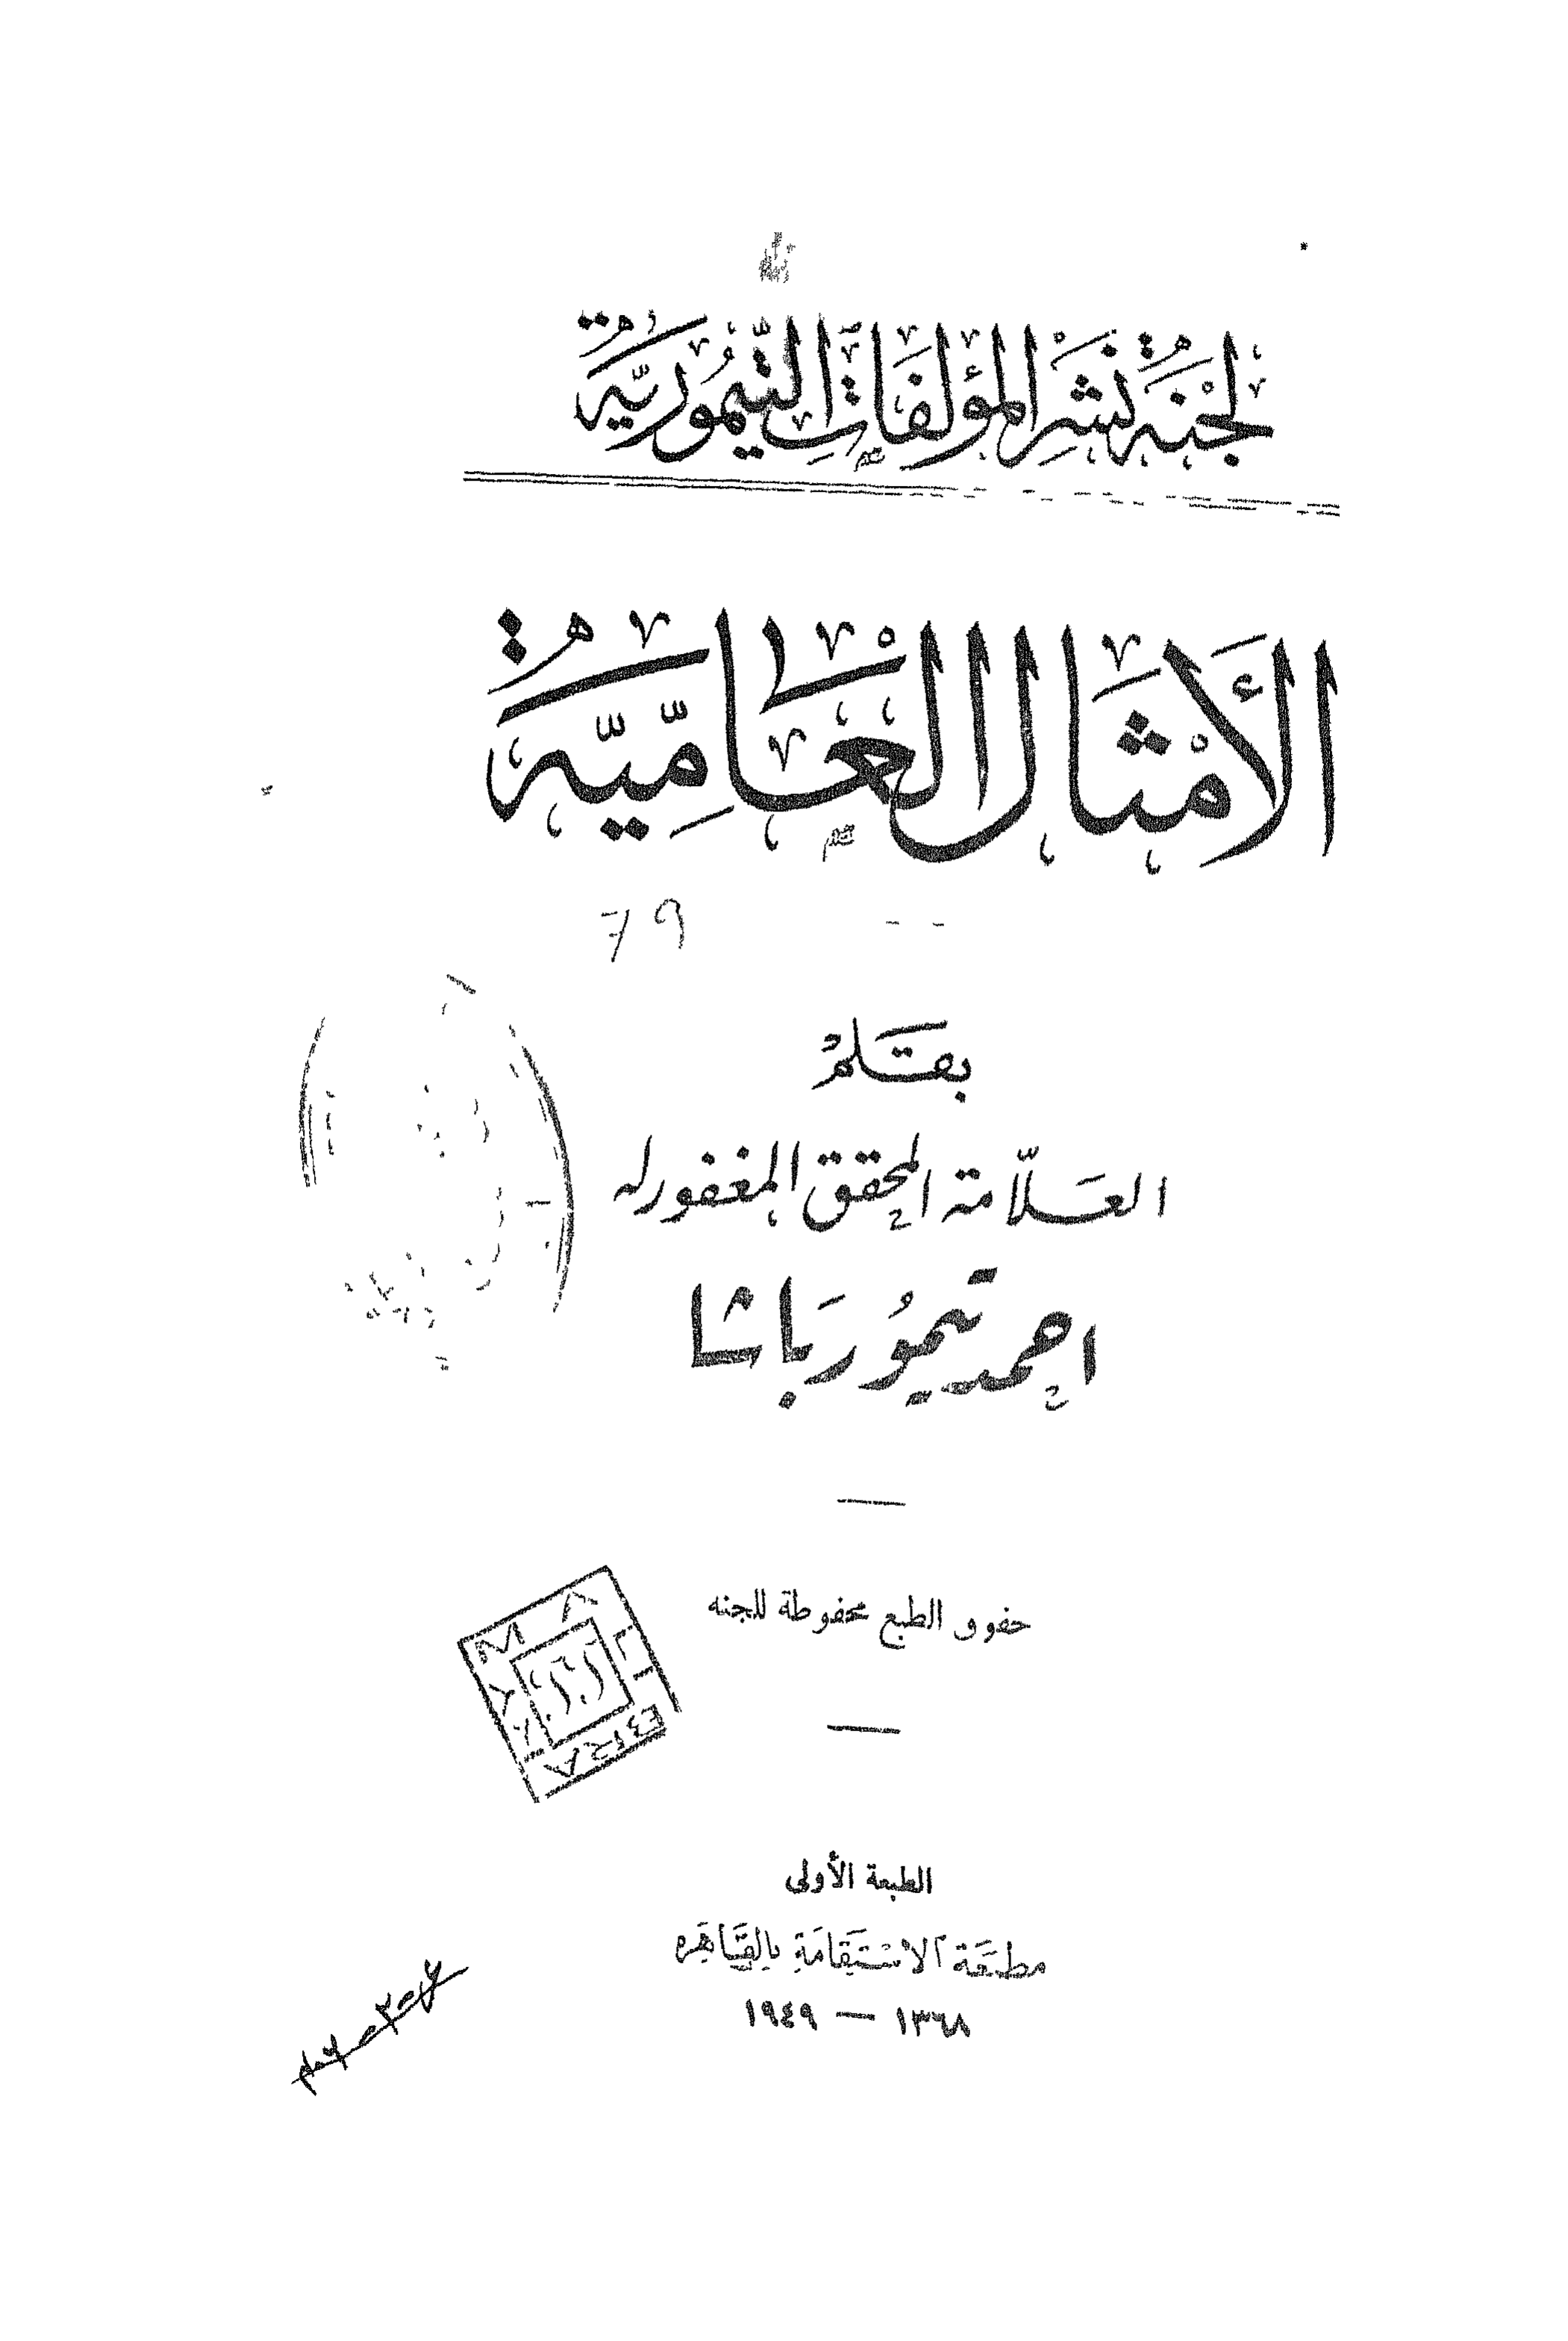 لجنة نشر المؤلفات التيمورية
الأمثال العامية
79
بقلم
العلامة المحقق المغفور له
احمد تيمور باشا
حقوق الطبع محفوظة للجنه
الطبعة الأولى
مطبعة الاستقامة بالقاهره
١٣٦٨ — ١٩٤٩